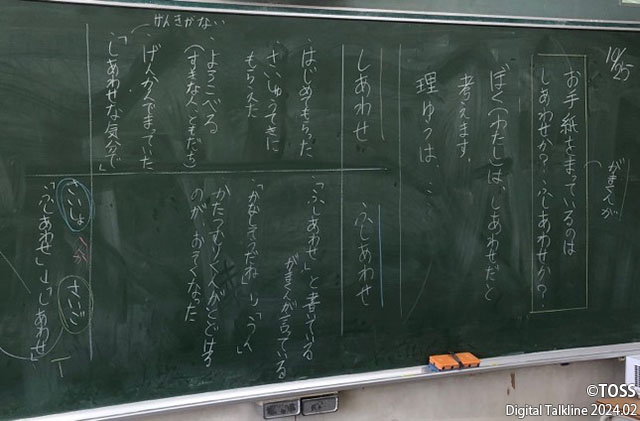 10/25
がまくんが
お手紙をまっているのは
しあわせか？ふしあわせか？
ぼく（わたし）は、しあわせだと
考えます。
理ゆうは、
しあわせ
はじめてもらった
さいしゅうてきに
もらえた
・ようこべる
（すきな人、ともだち）
・げんかんでまっていた
・「しあわせな気分で」
げんきがない
ふしあわせ
・「ふしあわせ」と書いている
がまくんが言っている
・「かなしそうだね」↳「うん」
・かたつむりくんがとどける
のが、おそくなった
さいしょ
が
さいご
・「ふしあわせ」→「しあわせ」
©TOSS
Digital Talkline 2024.02